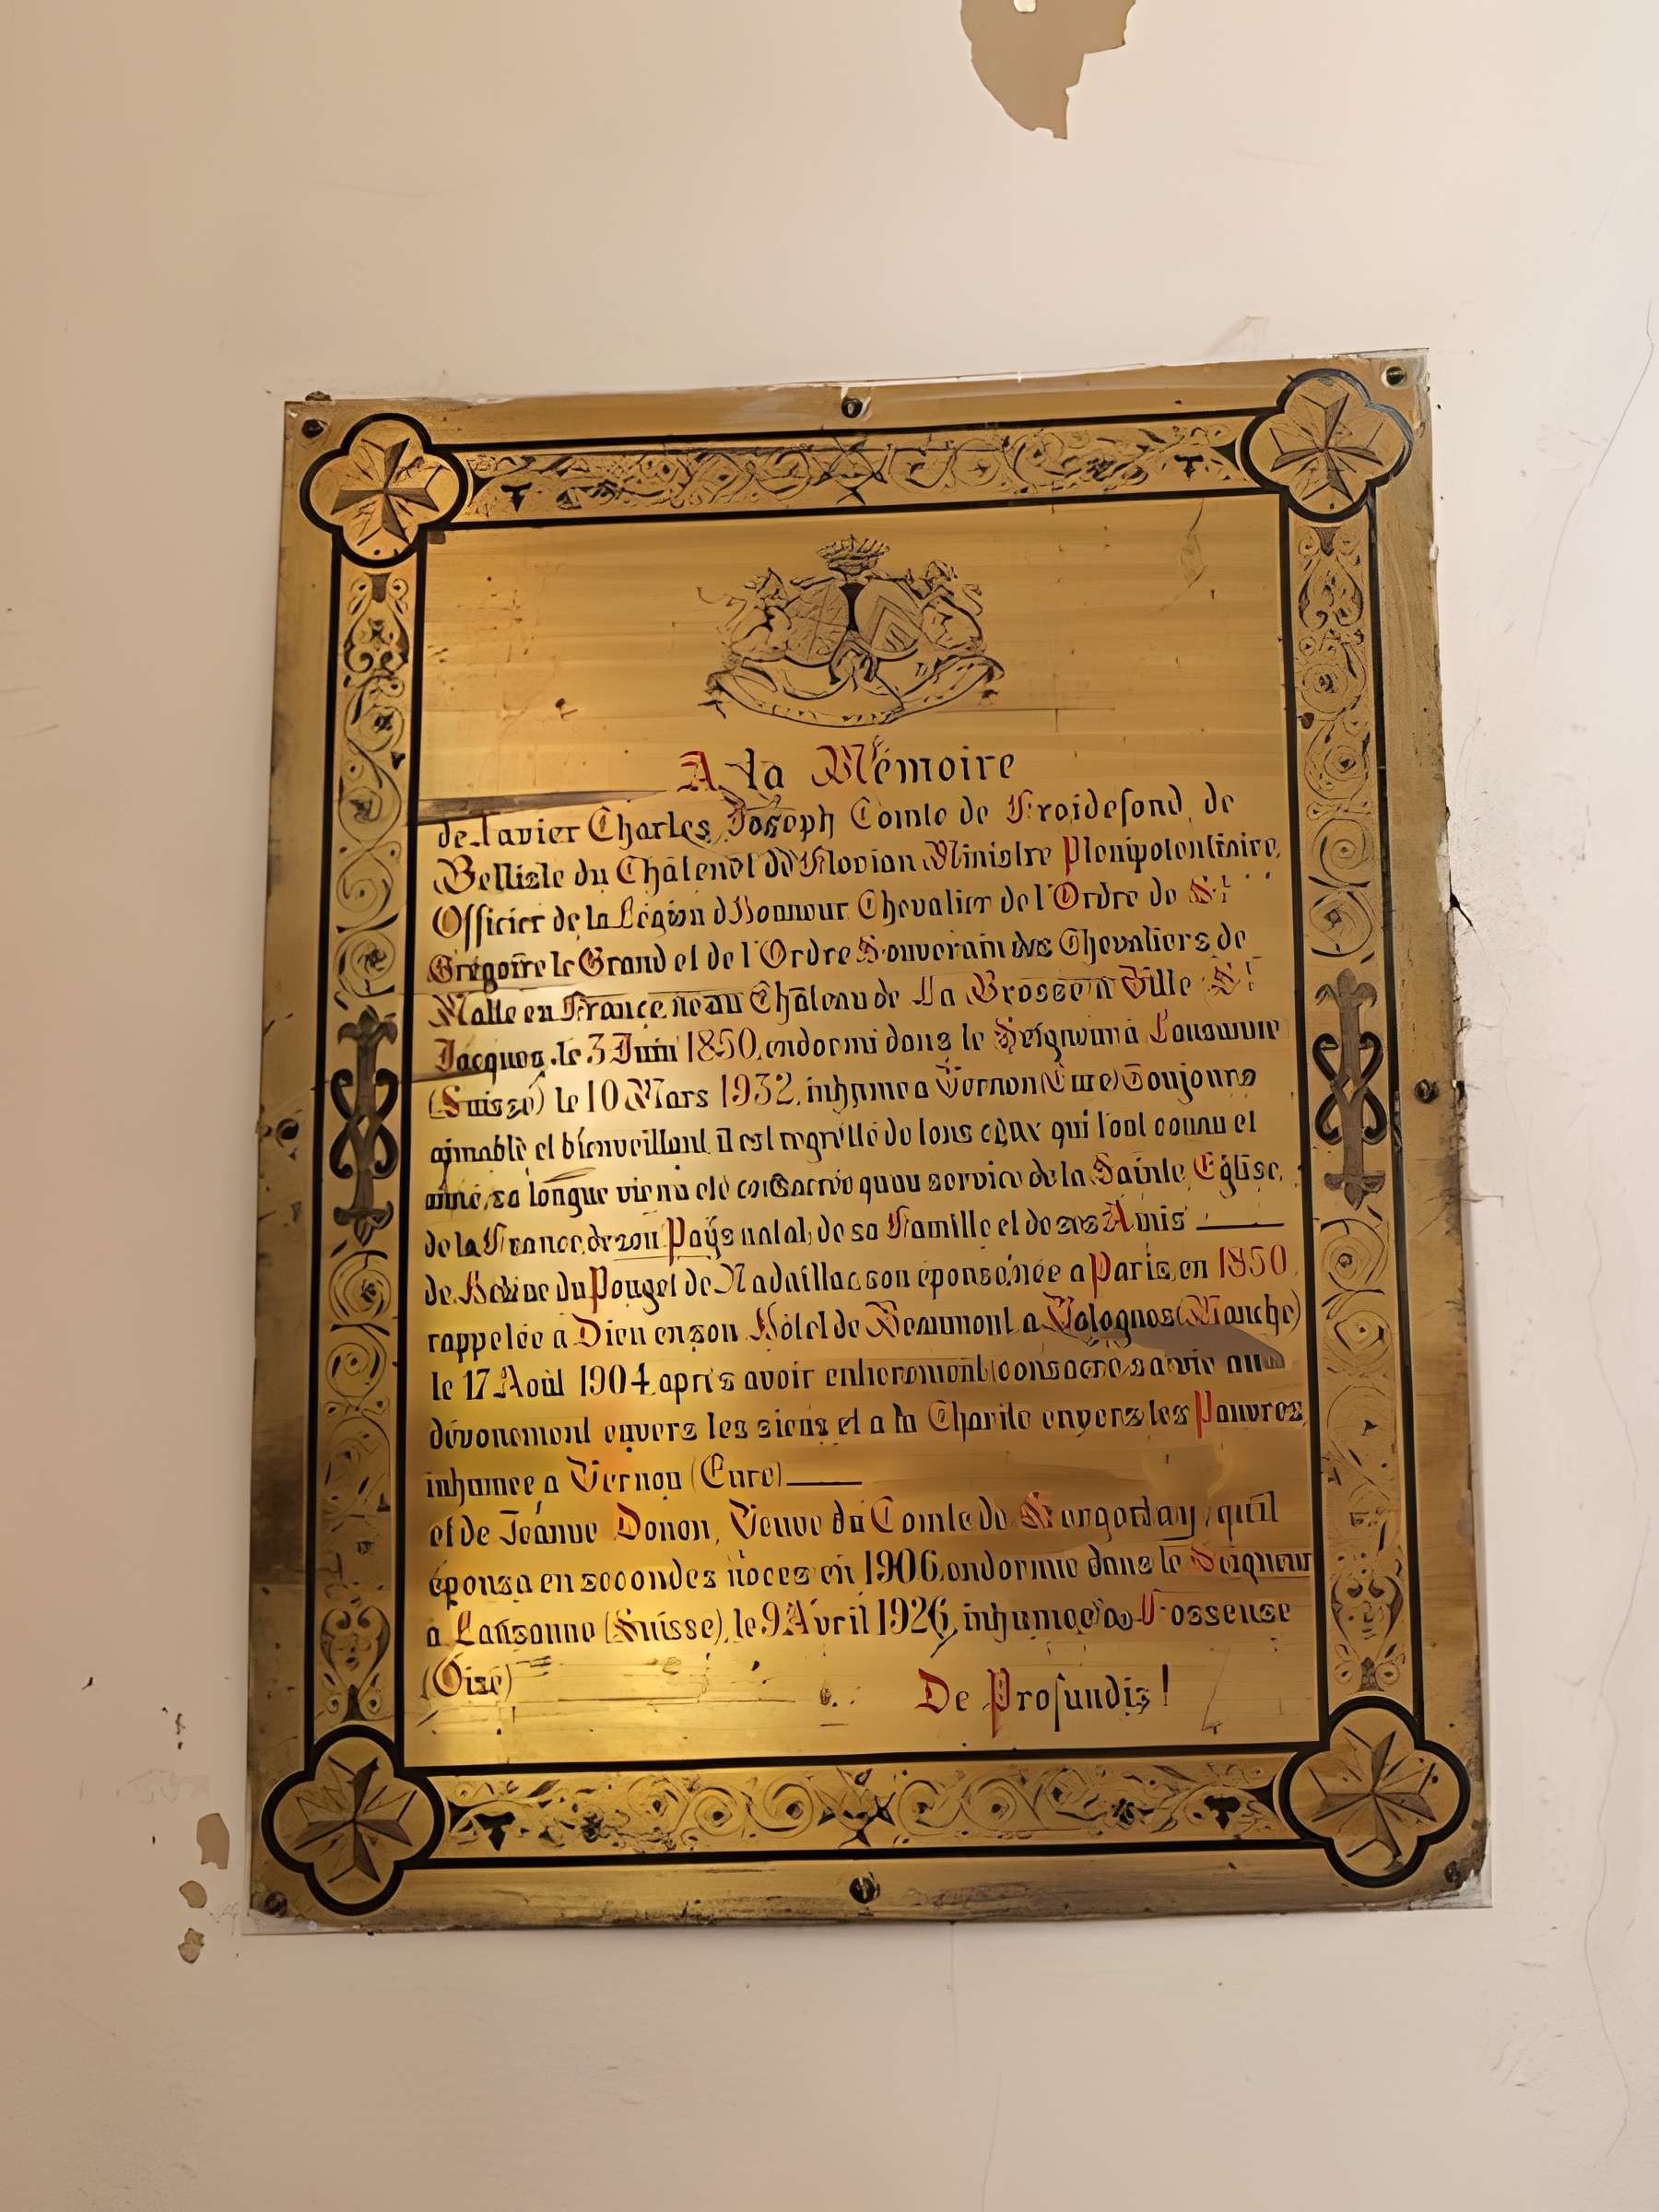 A la Mémoire
de Xavier Charles Joseph Comte de Froidefond de
Bellisle du Châtenet de Florian Ministre Plenipotentiaire,
Officier de la Légion d'Honneur Chevalier de l'Ordre de St
Grégoire le Grand et de l'Ordre Souverain des Chevaliers de
Malte en France, né au Château de La Brosse à Ville St
Jacques, le 3 Juin 1850, endormi dans le Seigneur à Lausanne
(Suisse) le 10 Mars 1932, inhumé a Vernon (Eure) Toujours
aimable et bienveillant, il est regretté de tous ceux qui l'ont connu et
aimé, sa longue vie n'a été consacrée qu'au service de la Sainte Eglise,
de la France, de son Pays natal, de sa Famille et de ses Amis
de du Pouget de Nadaillac son épouse, née a Paris, en 1850
rappelée à Dieu en son Hôtel de Beaumont a Valognes (Manche)
le 17 Août 1904, après avoir entierement consacré sa vie au
dévouement envers les siens et a la Charité envers les Pauvres,
inhumée a Vernon (Eure)
et de Jeanne Donon, Veuve du Comte de qu'il
épousa en secondes noces en 1906, endormie dans le Seigneur
à Lausanne (Suisse), le 9 Avril 1926, inhumée a Fosseuse
(Oise)
De Profundis !